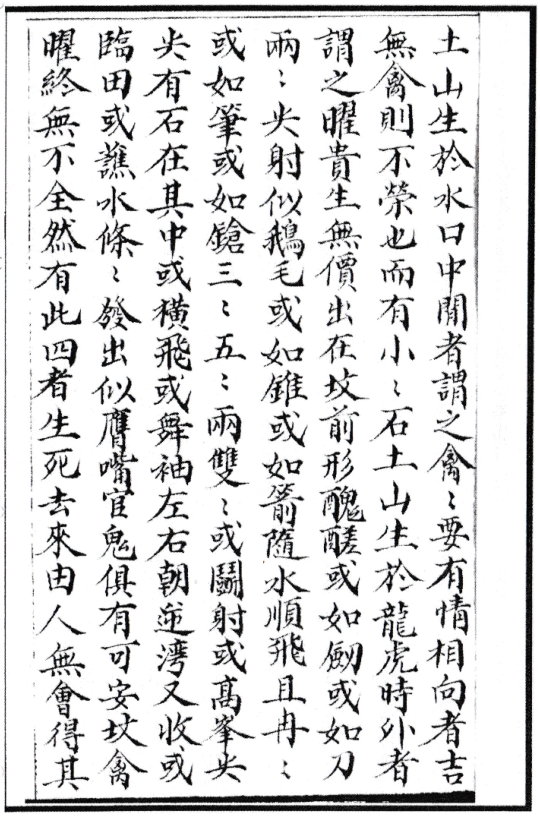 土山生於水口中閒者謂之禽〻要有情相向者吉
無禽則不榮也而有小〻石土山生於龍虎時外者
謂之曜貴生無價出在坟前形醜醝或如劒或如刀
兩〻尖射似鵝毛或如錐或如箭隨水順飛且冉〻
或如筆或如鎗三〻五〻兩雙〻或鬬射或高峯尖
尖有石在其中或橫飛或舞袖左右朝迎湾又收或
臨田或蘸水條〻發出似鷹嘴官鬼俱有可安坟禽
曜終無不全然有此四者生死去來由人無會得其